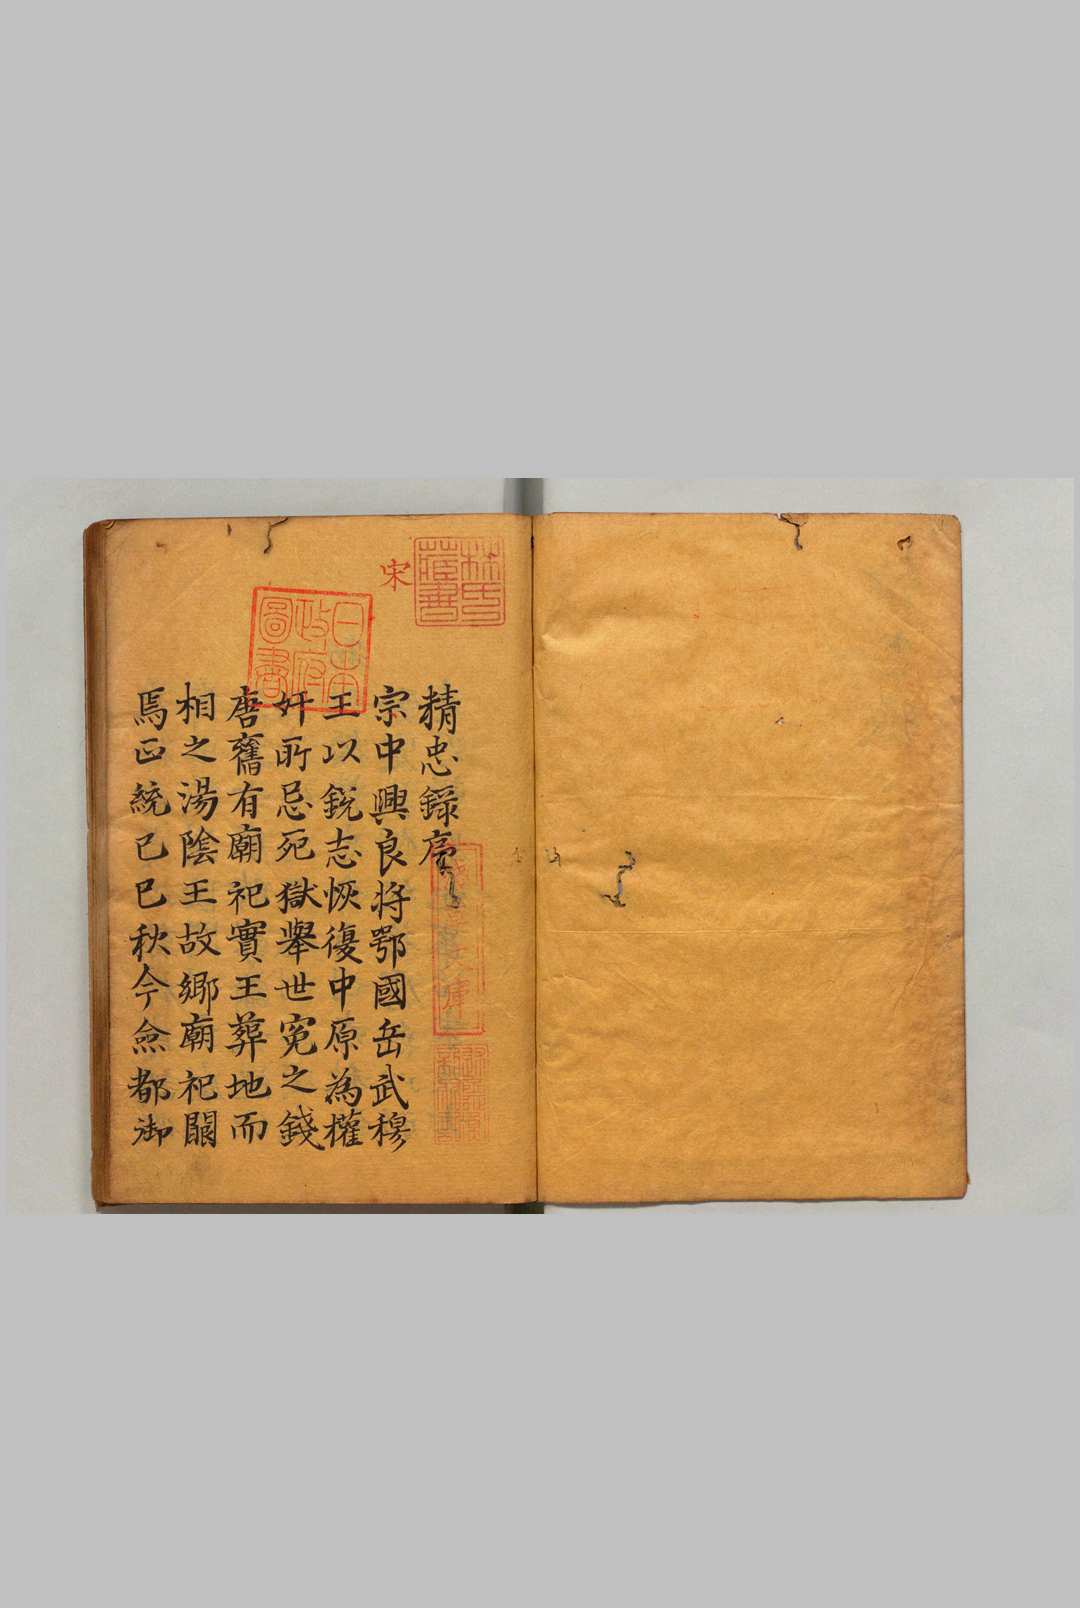 精忠錄序
宋
宗中興良将鄂國岳武穆
王以銳志恢復中原為權
奸所忌死獄舉世寃之錢
唐舊有廟祀實王葬地而
相之湯陰王故鄉廟祀闕
焉正統己巳秋今僉都御
林氏藏書
日本政府圖書